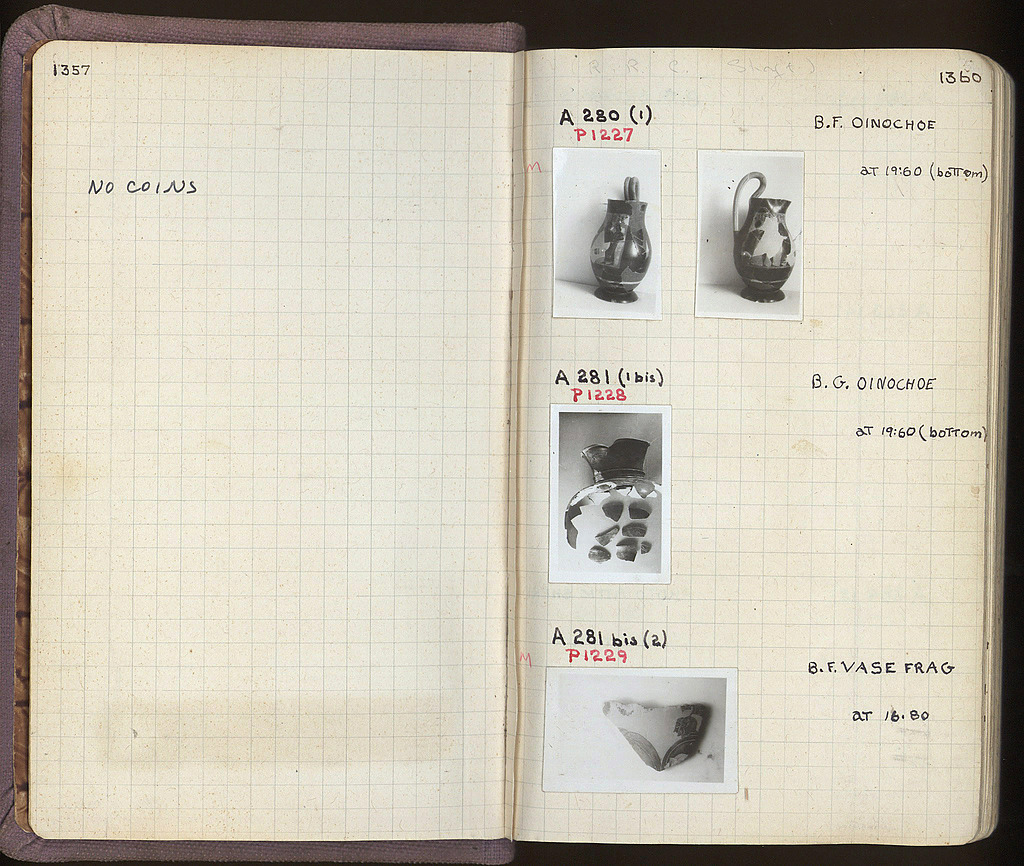 1357
NO COINS
1360
A 280 (1)
P1227
B.F. OINOCHOE
M
at 19:60 (bottom)
A 281 (1 bis)
P1228
B.G. OINOCHOE
at 19:60 (bottom)
A 281 bis (2)
P1229
M
B.F. VASE FRAG
at 16.80